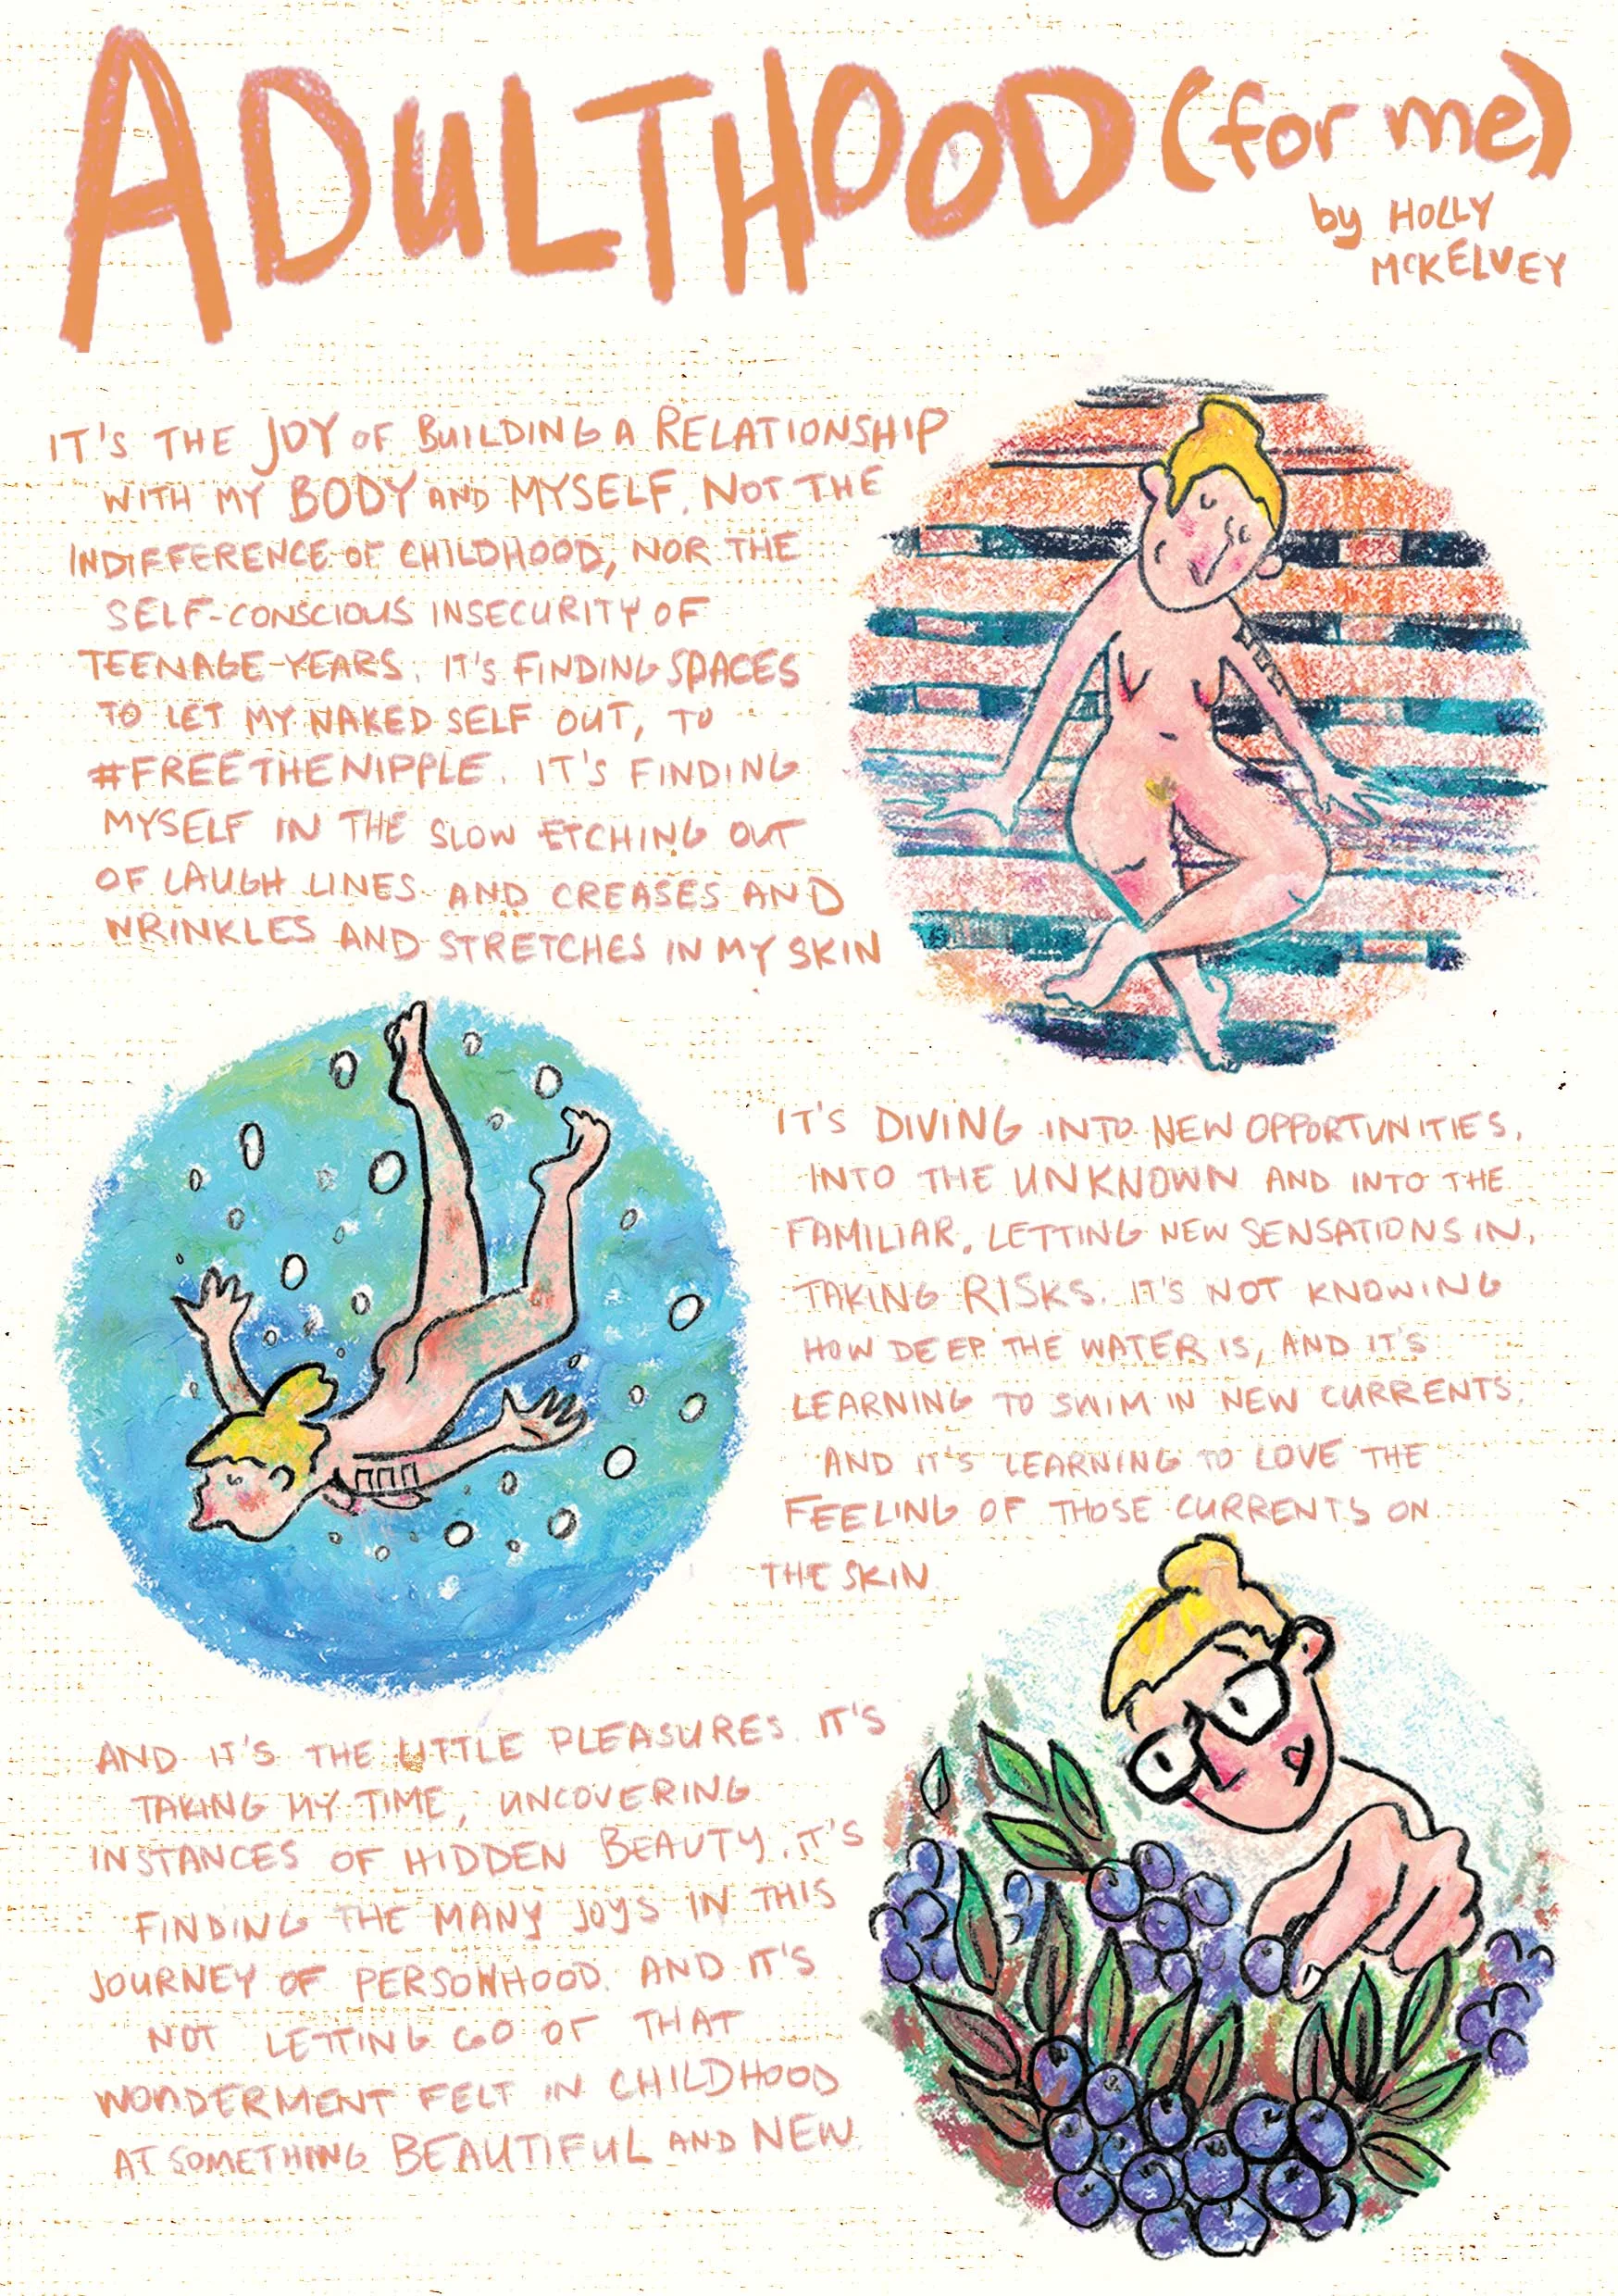 ADULTHOOD (for me)
by HOLLY
McKELVEY
IT'S THE JOY OF BUILDING A RELATIONSHIP
WITH MY BODY AND MYSELF. NOT THE
INDIFFERENCE OF CHILDHOOD, NOR THE
SELF-CONSCIOUS INSECURITY OF
TEENAGE YEARS. IT'S FINDING SPACES
TO LET MY NAKED SELF OUT, TO
#FREETHENIPPLE. IT'S FINDING
MYSELF IN THE SLOW ETCHING OUT
OF LAUGH LINES AND CREASES AND
WRINKLES AND STRETCHES IN MY SKIN
IT'S DIVING INTO NEW OPPORTUNITIES,
INTO THE UNKNOWN AND INTO THE
FAMILIAR, LETTING NEW SENSATIONS IN,
TAKING RISKS. IT'S NOT KNOWING
HOW DEEP THE WATER IS, AND IT'S
LEARNING TO SWIM IN NEW CURRENTS.
AND IT'S LEARNING TO LOVE THE
FEELING OF THOSE CURRENTS ON
THE SKIN
AND IT'S THE LITTLE PLEASURES. IT'S
TAKING MY TIME, UNCOVERING
INSTANCES OF HIDDEN BEAUTY. IT'S
FINDING THE MANY JOYS IN THIS
JOURNEY OF PERSONHOOD. AND IT'S
NOT LETTING GO OF THAT
WONDERMENT FELT IN CHILDHOOD
AT SOMETHING BEAUTIFUL AND NEW.